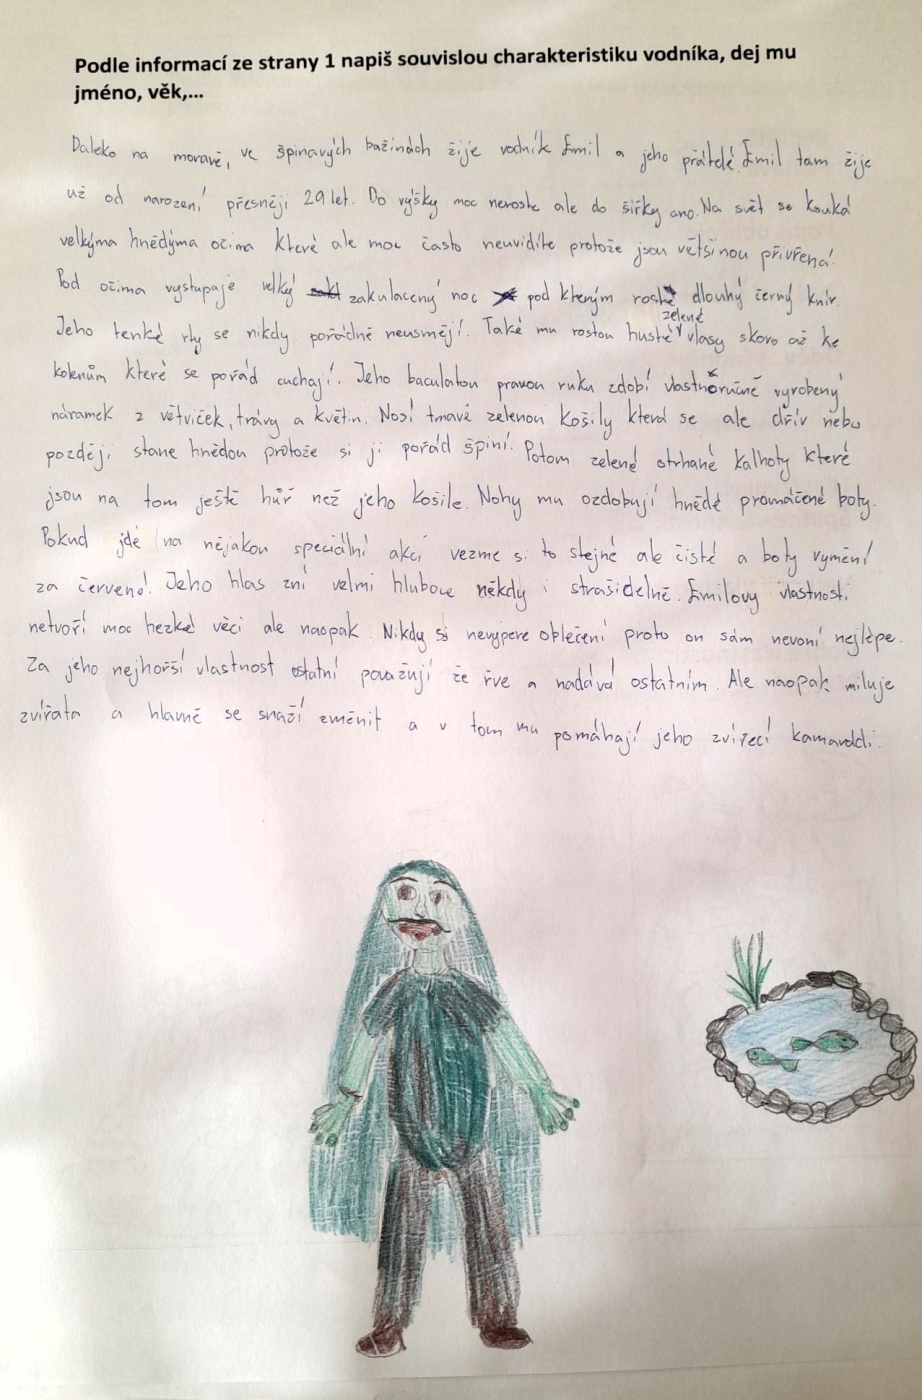 Podle informací ze strany 1 napiš souvislou charakteristiku vodníka, dej mu
jméno, věk,...
Daleko na moravě, ve špinavých bažinách žije vodník Emil a jeho přátelé. Emil tam žije
už od narození přesněji 29 let. Do výšky moc neroste ale do šířky ano. Na svět se kouká
velkýma hnědýma očima které ale moc často neuvidíte protože jsou většinou přivřená.
Pod očima vystupuje velký zakulacený noc pod kterým roste dlouhý černý knír.
Jeho tenké rty se nikdy pořádně neusmějí. Také mu rostou husté zelené vlasy skoro až ke
kolenům které se pořád cuchají. Jeho baculatou pravou ruku zdobí vlastnoručně vyrobený
náramek z větviček, trávy a květin. Nosí tmavě zelenou košily která se ale dřív nebo
později stane hnědou protože si ji pořád špiní. Potom zelené otrhané kalhoty které
jsou na tom ještě hůř než jeho košile. Nohy mu ozdobují hnědé promáčené boty.
Pokud jde na nějakou speciální akci vezme si to stejné ale čisté a boty vymění
za červené. Jeho hlas zní velmi hluboce někdy i strašidelně. Emilovy vlastnosti
netvoří moc hezké věci ale naopak. Nikdy si nevypere oblečení proto on sám nevoní nejlépe.
Za jeho nejhorší vlastnost ostatní považují že řve a nadává ostatním. Ale naopak miluje
zvířata a hlavně se snaží změnit a v tom mu pomáhají jeho zvířecí kamarádi.